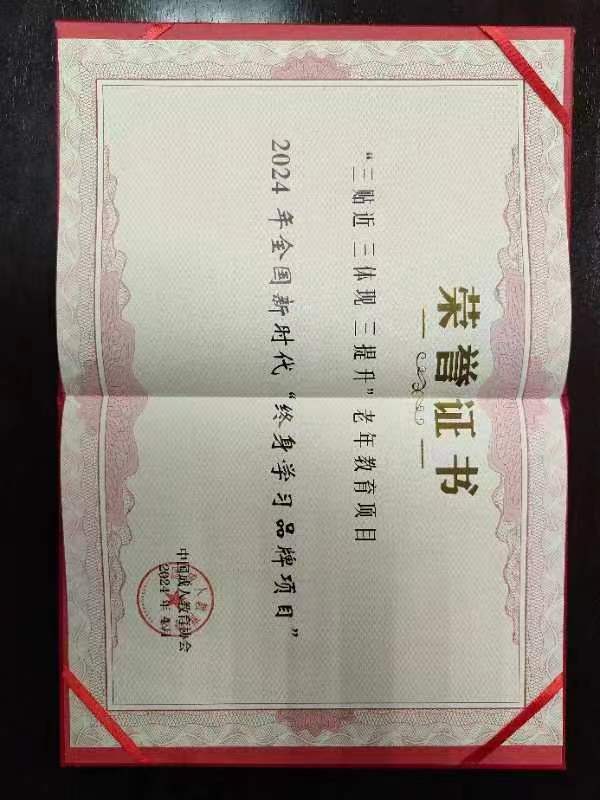 荣誉证书
“三贴近 三体现 三提升”老年教育项目
2024年全国新时代“终身学习品牌项目”
中国成人教育协会
2024年